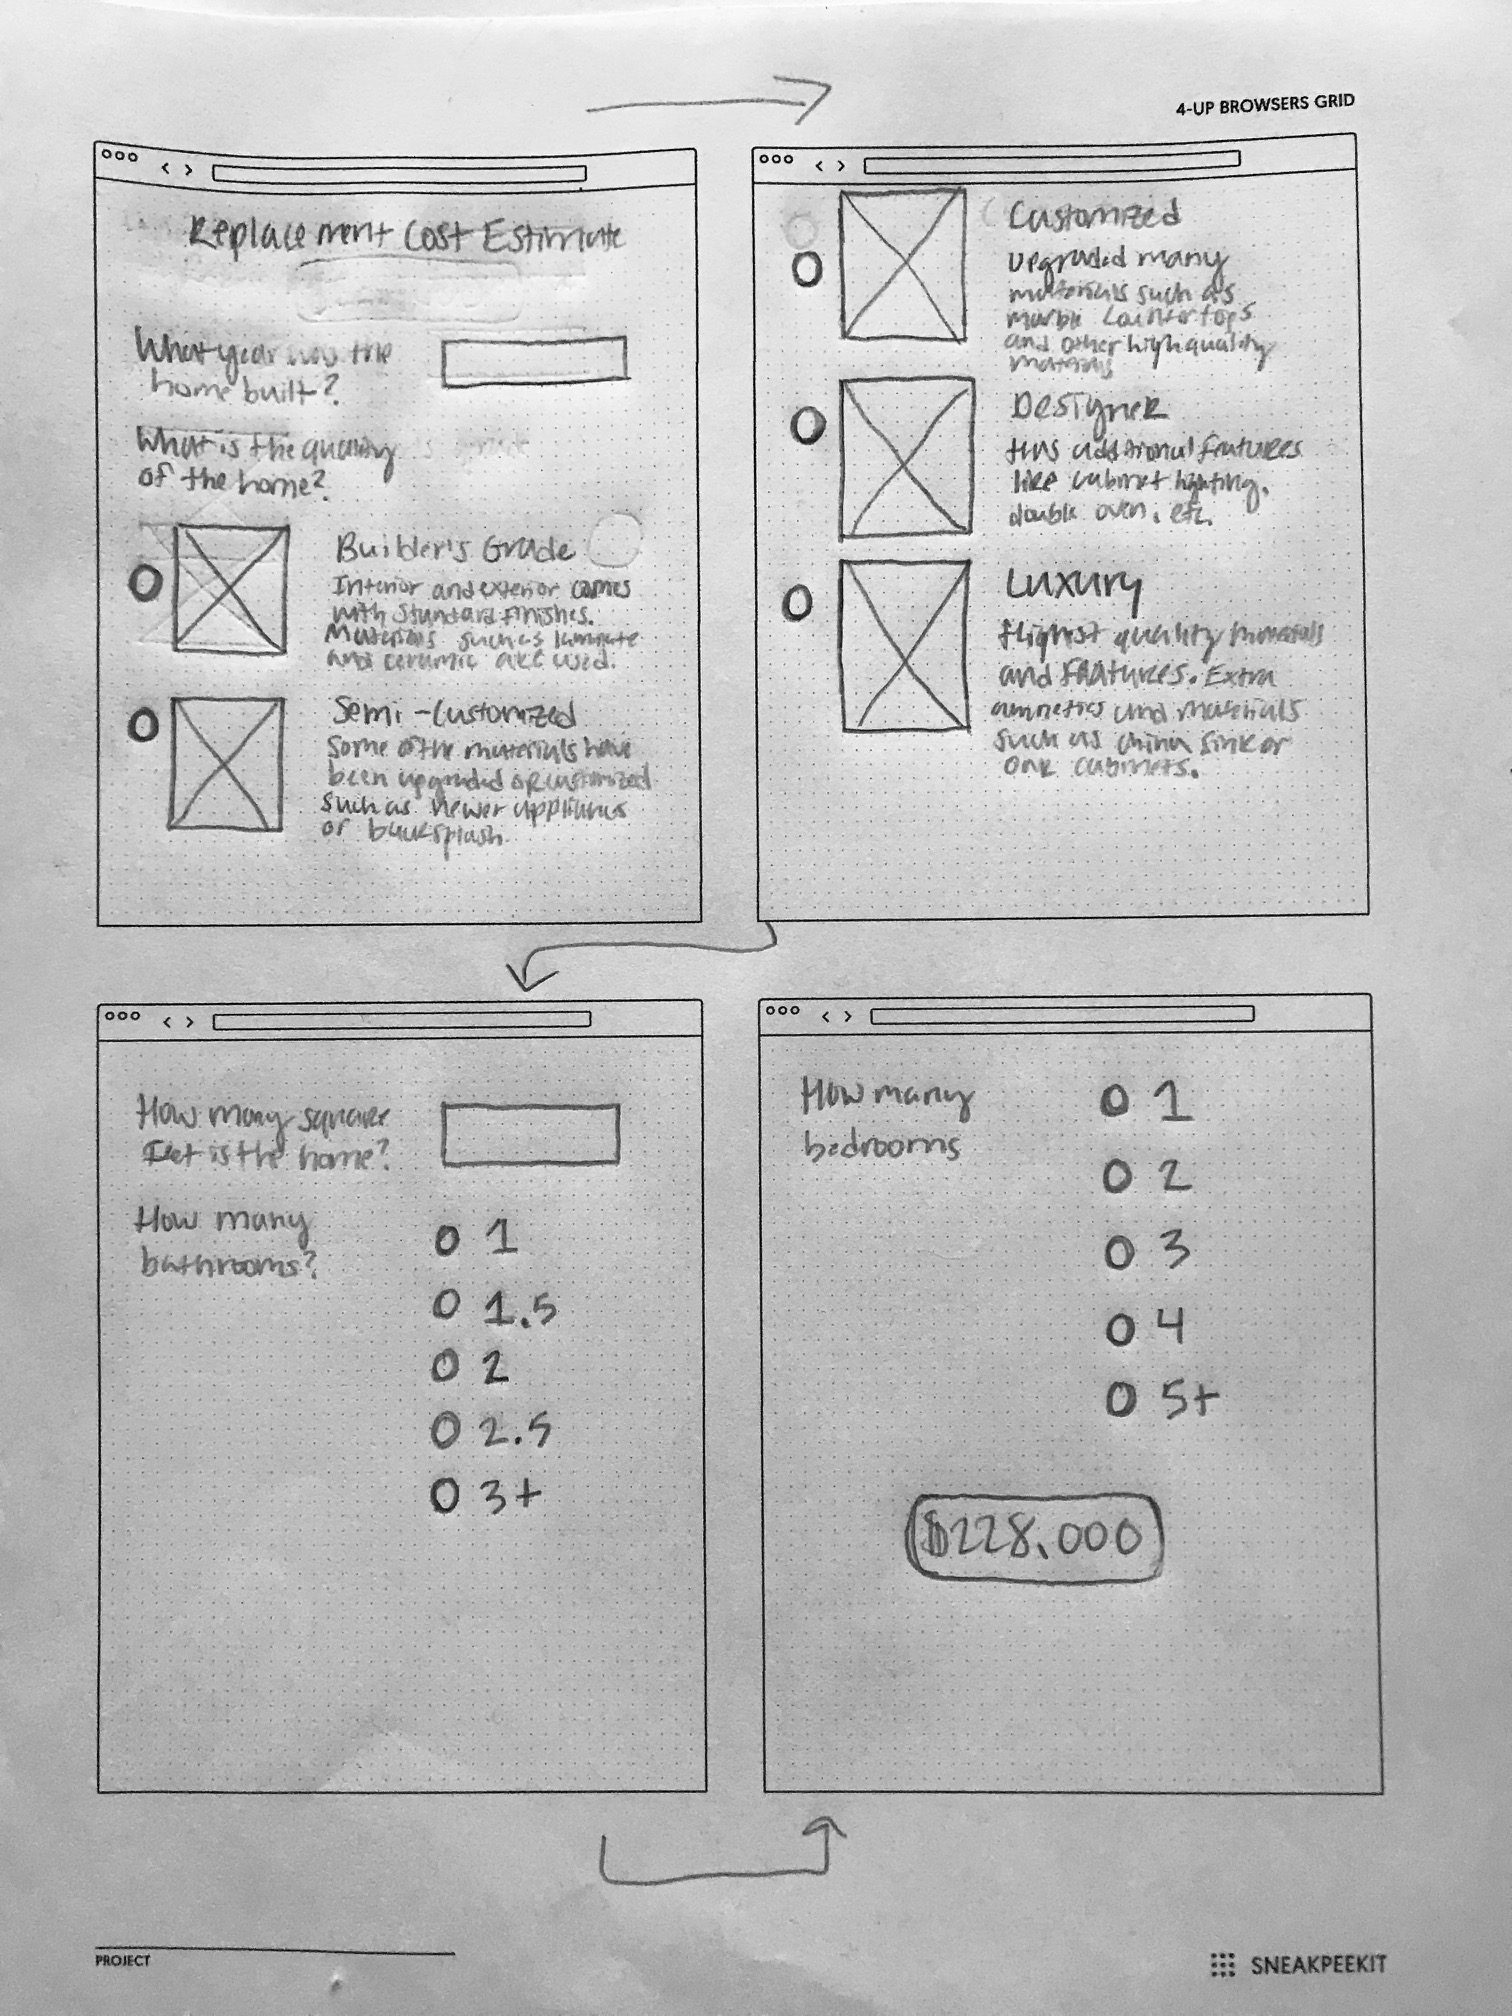 4-UP BROWSERS GRID
Replacement Cost Estimate
What year was the
home built?
What is the quality
of the home?
Builder's Grade
Interior and exterior comes
with standard finishes.
Materials such as laminate
and ceramic are used.
Semi-Customized
Some of the materials have
been upgraded or customized
such as newer appliances
or backsplash.
Customized
upgraded many
materials such as
marble countertops
and other high quality
materials
Designer
Has additional features
like cabinet lighting,
double oven, etc.
Luxury
Highest quality materials
and features. Extra
and materials
such as china sink or
cabinets.
How many square
feet is the home?
How many
bathrooms?
1
1.5
2
2.5
3+
How many
bedrooms
1
2
3
4
5+
$228,000
PROJECT
SNEAKPEEKIT